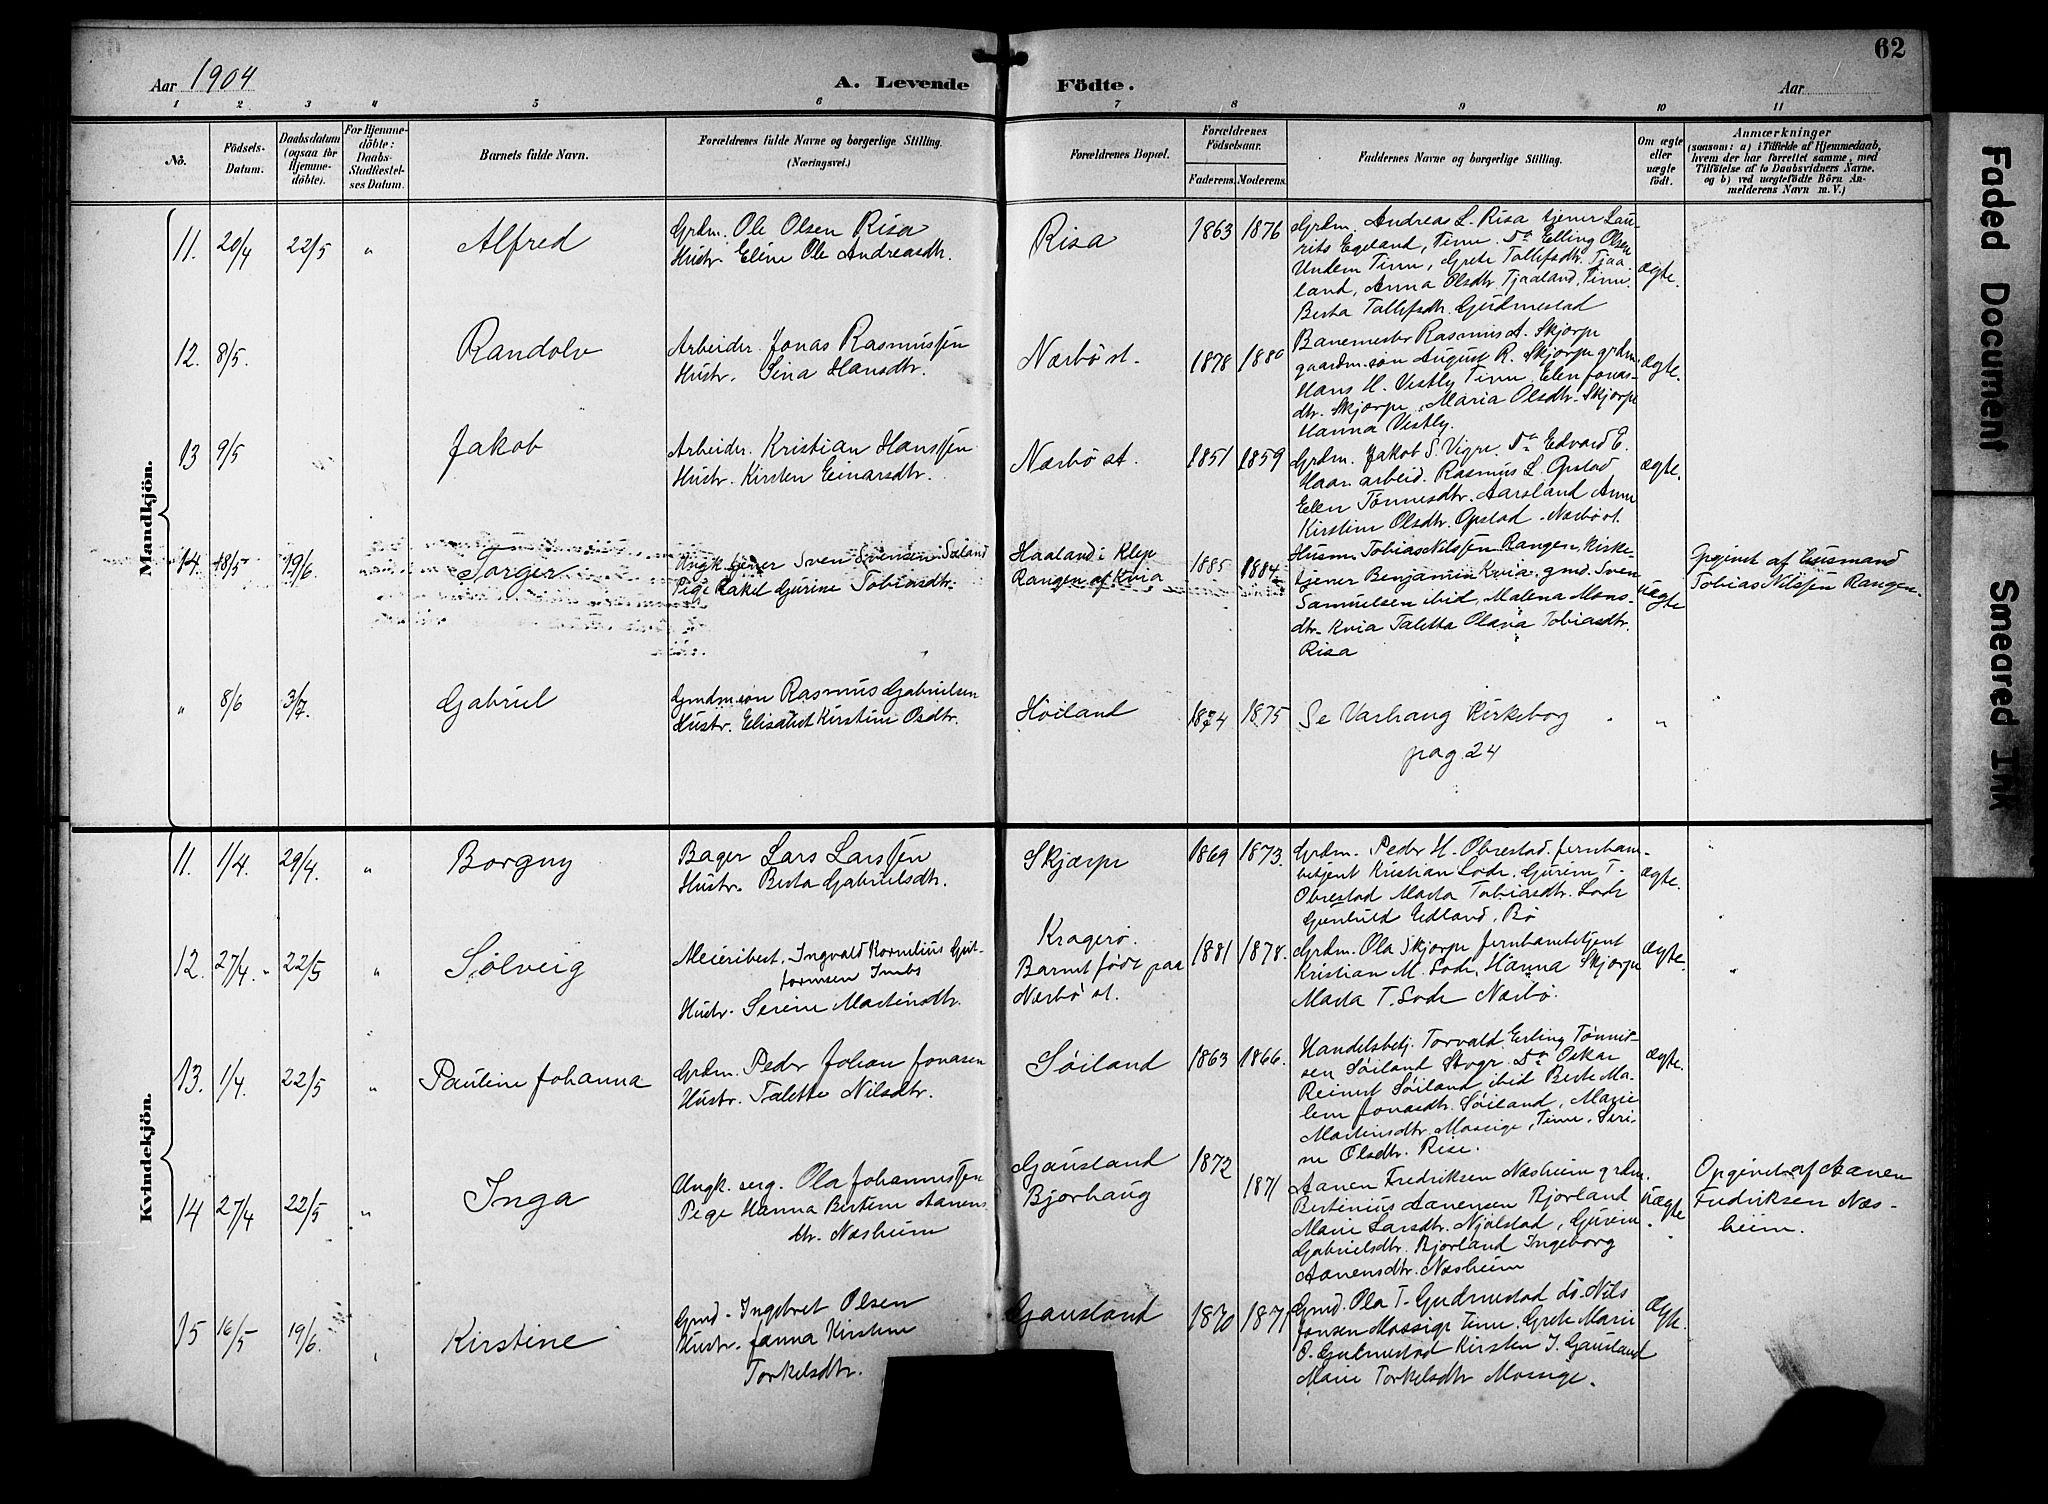 62
Aar 1904
A. Levende Födte.
Aar
1 2 3 4 5 6 7 8 9 10 11
No.
Födsels-Datum.
Daabsdatum (ogsaa for Hjemme-döbte).
For Hjemme-döbte: Daabs-Stadfæstel-ses Datum.
Barnets fulde Navn.
Forældrenes fulde Navne og borgerlige Stilling.
(Næringsvei.)
Forældrenes Bopæl.
Forældrenes Födselsaar.
Faderens. Moderens.
Faddernes Navne og borgerlige Stilling.
Om ægte eller uægte födt.
Anmærkninger
(saasom: a) i Tilfælde af Hjemmedaab,
hvem der har forrettet samme, med
Tilföielse af to Daabsvidners Navne.
og b) ved uægtefödte Börn An-
melderens Navn m. V.)
Mandkjön.
11. 20/4 22/5 " Alfred
Grdm. Ole Olsen Risa
Hustr. Eline Ole Andreasdtr.
Risa
1863 1876
Grdm. Andreas L. Risa tjener Lau-
rits Egeland, Time. Do Elling Olsen
Undem Time, Grete Tollefsdtr. Tjaa-
land, Anna Olsdtr. Tjaaland, Time.
Berta Tollefsdtr. Gudmestad
ægte.
12. 8/5. Randolv
Arbeider. Jonas Rasmussen
Hustr. Sina Hansdtr.
Nærbö st.
1878 1880
Banemester Rasmus A. Skjærpe
gaardm. søn August R. Skjærpe grdm.
Hans H. Vestly Time, Elen Jonas-
dtr. Skjærpe, Maria Olsdtr. Skjærpe
Hanna Vestly.
ægte.
13 9/5 Jakob
Arbeider. Kristian Hanssen
Hustr. Kirsten Einarsdtr.
Nærbö st.
1851 1859
Grdm. Jakob S. Vigre. Do Edvard E.
Haar. arbeid. Rasmus L. Opstad
Elen Tønnesdtr. Aarsland Anne
Kirstine Olsdtr. Opstad. Nærbö st.
ægte.
14. 18/5 19/6. Torger
Ungk. tjener Sven Svensen Søiland
Pige Rakel Gurine Tobiasdtr.
Haaland i Klep
Rangen af Kvia
1885 1884
Husm. Tobias Nilssen Rangen, Kirke-
tjener Benjamin Kvia. gmd. Sven
Samuelsen ibid, Malena Mons-
dtr. Kvia Taletta Olava Tobiasdtr.
Risa
uægte
Opgivet af husmand
Tobias Nilssen Rangen.
" 8/6 3/7. Gabriel
Gmdm. søn Rasmus Gabrielsen
Hustr. Elisabet Kirstine Osdtr.
Höiland
1874 1875
Se Varhaug Kirkebog
pag. 24
"
Kvindekjön.
11. 1/4. 29/4. " Borgny
Bager Lars Larssen
Hustr. Berta Gabrielsdtr.
Skjærpe
1869 1873.
Grdm. Peder H. Obrestad. jernban-
betjent Kristian Lode, Gurine T.
Obrestad Marta Tobiasdtr. Lode
Gunhild Edland. Bö
ægte.
"
12. 27/4. 22/5 " Solveig
Meieribest. Ingvald Kornelius Gut-
tormsen
Hustr. Serine Martinsdtr.
Kragerö.
Barnet född paa
Nærbö st.
1881 1878.
Grdm. Ola Skjærpe jernbanebetjent
Kristian M. Lode, Hanna Skjærpe
Marta T. Lode Nærbö.
ægte.
"
13. 1/4. 22/5 " Pauline Johanna
Grdm. Peder Johan Jonasen
Hustr. Talette Nilsdtr.
Søiland
1863 1866.
Handelsbetj. Torvald Erling Tønnes-
sen Søiland Stvgr. Do Oskar
Reinert Søiland ibid Berte Ma-
lene Jonasdtr. Søiland, Marie
Martinsdtr. Mossige, Time. Seri-
ne Olsdtr. Rise.
ægte.
14 27/4 22/5 " Inga
Ungk. serg. Ola Johannessen
Pige Hanna Bertine Aanens-
dtr. Næsheim
Gausland
Bjorhaug
1872
1871
Aanen Fredriksen Næsheim grdm.
Bertinius Aanensen Bjorland
Marie Larsdtr. Njølstad, Gurine
Gabrielsdtr. Bjorland Ingeborg
Aanensdtr. Næsheim
uægte.
Opgivet af Aanen
Fredriksen Næs-
heim.
15 16/5 19/6. " Kirstine
Gmd. Ingebret Olsen
Hustr. Janna Kirstine
Torkelsdtr.
Gausland
1870 1871
Gmd. Ola T. Gudmestad do. Nils
Jonsen Mossige Time, Grete Marie
O. Gudmestad Kirsten I. Gausland
Marie Torkelsdtr Mossige.
ægte.
Faded Document
Smeared Ink